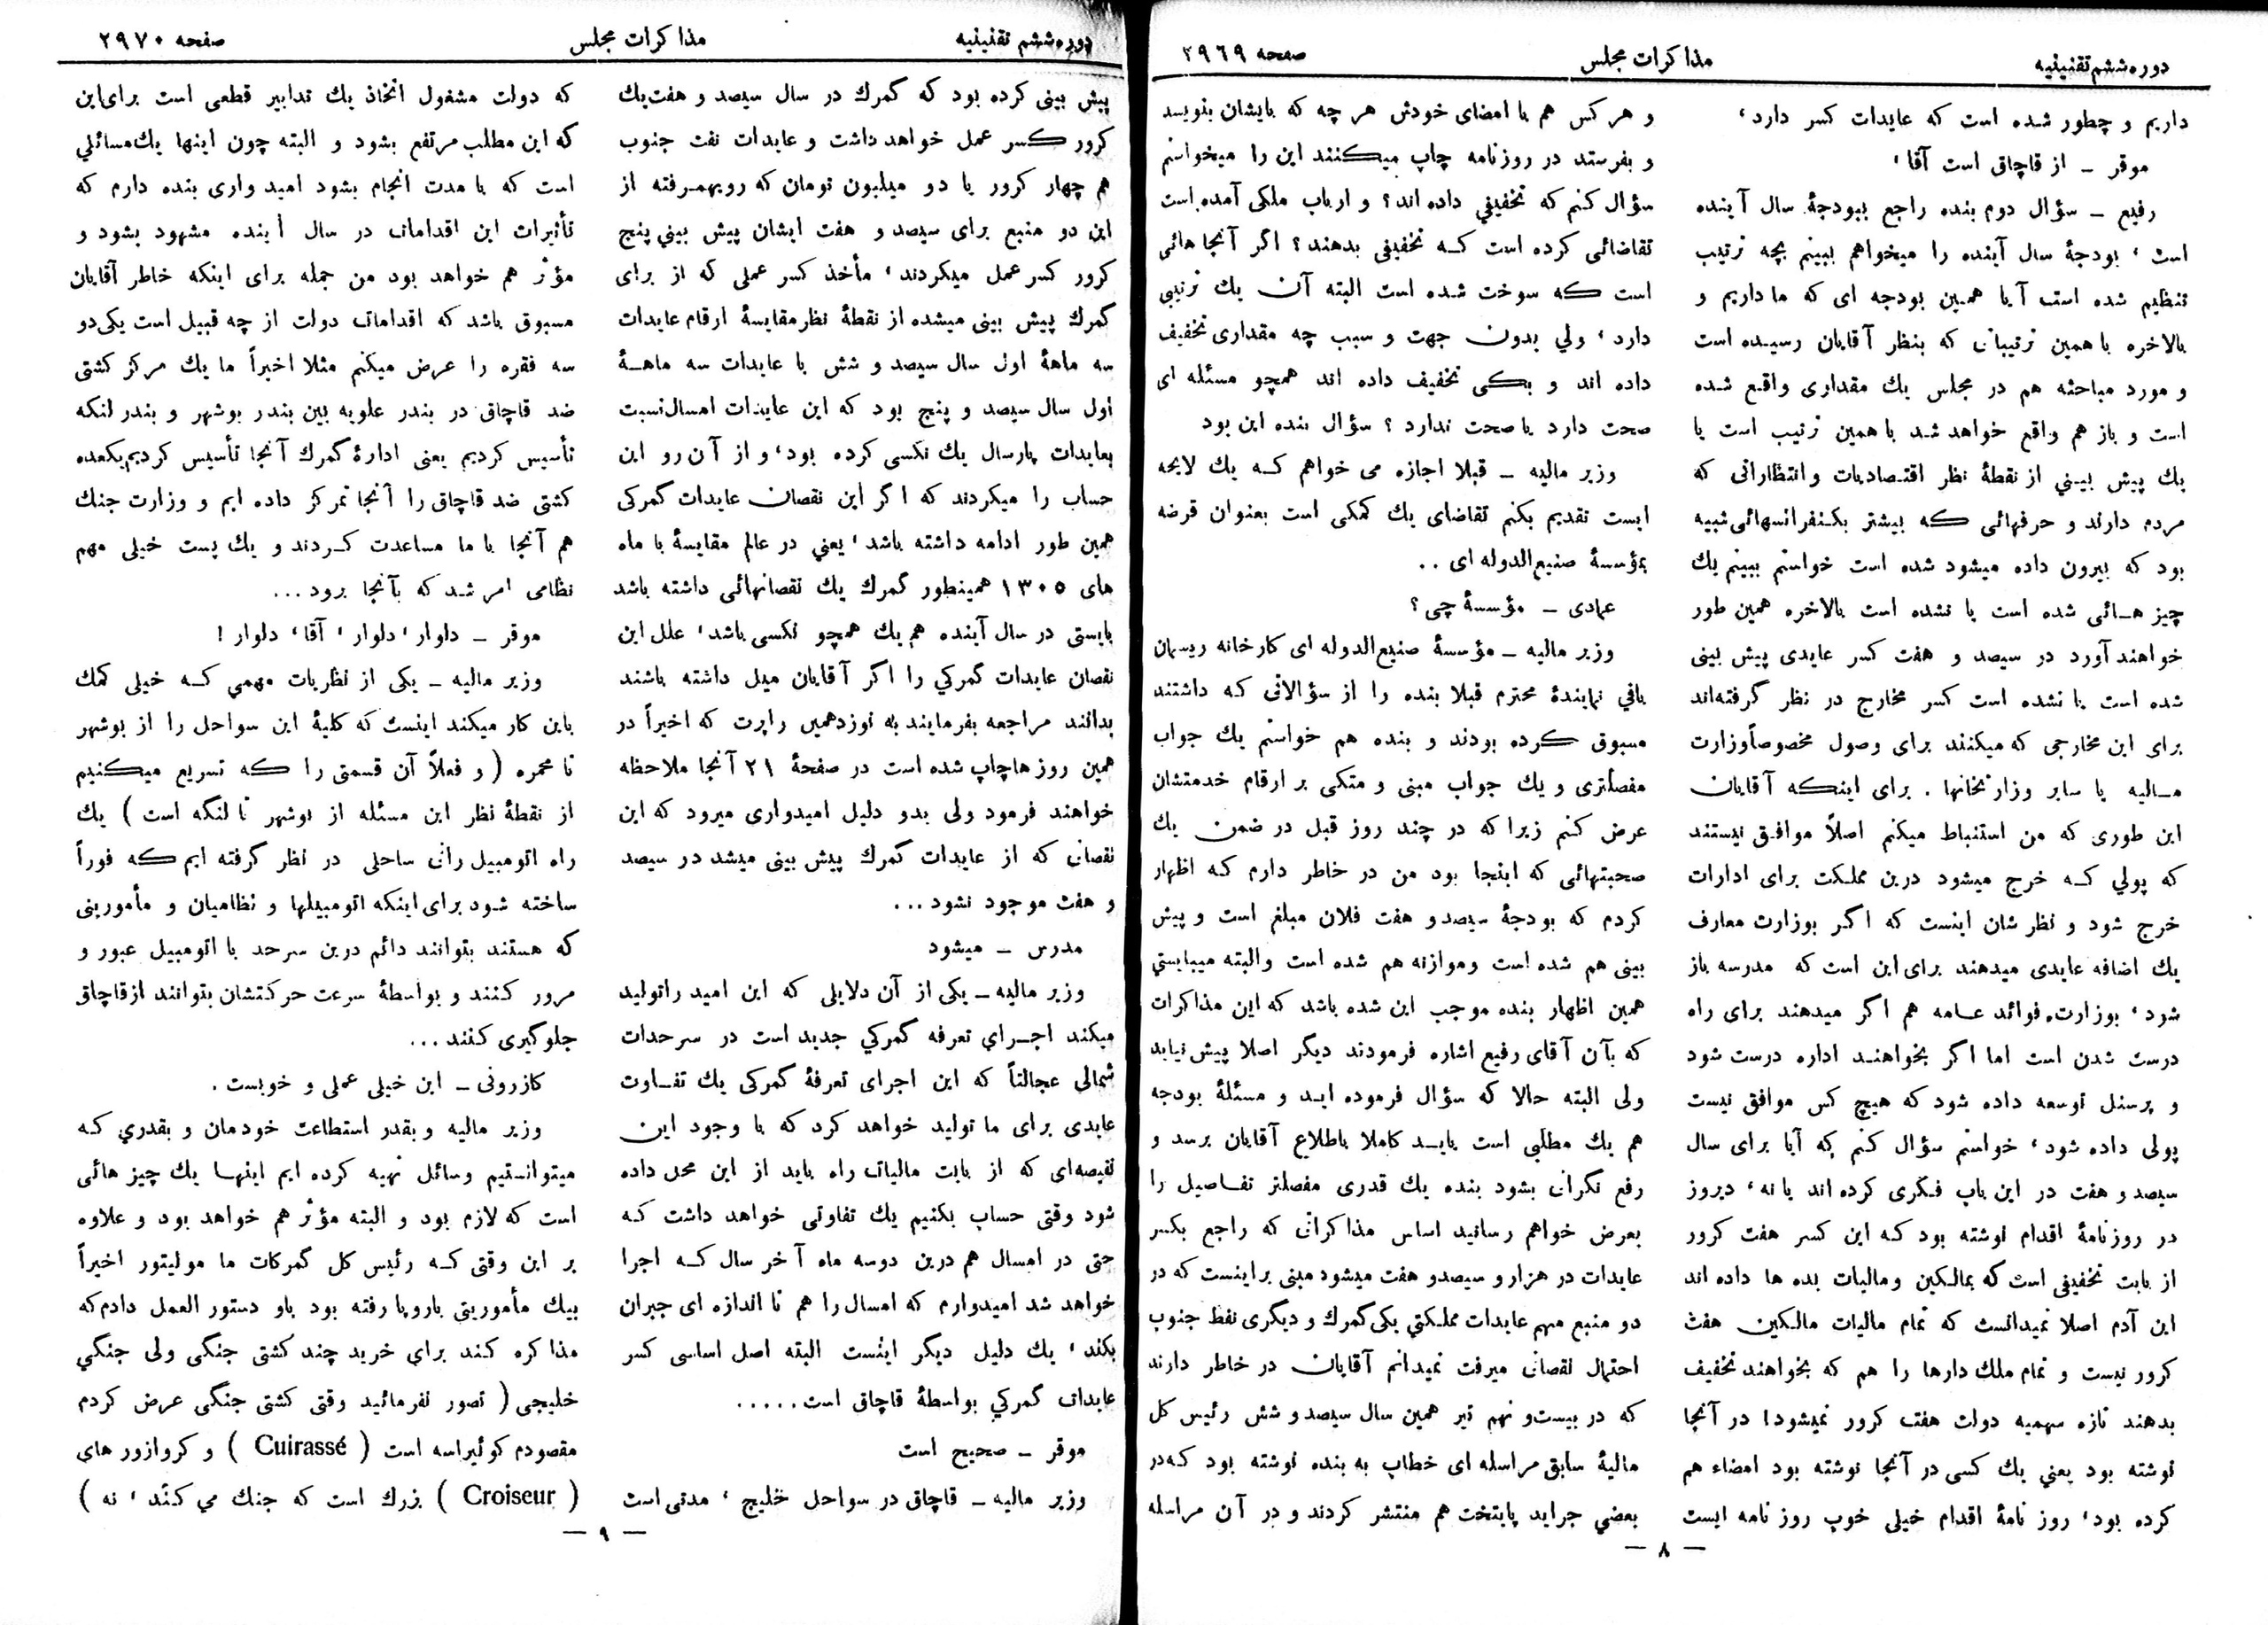 دوره ششم تقنینیه
مذاکرات مجلس
صفحه ۲۹۶۹
داریم و چطور شده است که عایدات کسر دارد،
موقر ـ از قاچاق است آقا،
رفیع ـ سؤال دوم بنده راجع ببودجهٔ سال آینده
است ، بودجهٔ سال آینده را میخواهم ببینم بچه ترتیب
تنظیم شده است آیا همین بودجه ای که ما داریم و
بالاخره با همین ترتیباتی که بنظر آقایان رسیده است
و مورد مباحثه هم در مجلس یك مقداری واقع شده
است و باز هم واقع خواهد شد با همین ترتیب است یا
یك پیش بینی از نقطهٔ نظر اقتصادیات و انتظاراتی که
مردم دارند و حرفهائی که بیشتر بکنفرانسهائی شبیه
بود که بیرون داده میشود شده است خواستم ببینم یك
چیز هائی شده است یا نشده است بالاخره همین طور
خواهند آورد در سیصد و هفت کسر عایدی پیش بینی
شده است یا نشده است کسر مخارج در نظر گرفته‌اند
برای این مخارجی که میکنند برای وصول مخصوصاً وزارت
مالیه یا سایر وزارتخانها . برای اینکه آقایان
این طوری که من استنباط میکنم اصلاً موافق نیستند
که پولی که خرج میشود درین مملکت برای ادارات
خرج شود و نظر شان اینست که اگر بوزارت معارف
یك اضافه عایدی میدهند برای این است که مدرسه باز
شود ، بوزارت فوائد عامه هم اگر میدهند برای راه
درست شدن است اما اگر بخواهند اداره درست شود
و پرسنل توسعه داده شود که هیچ کس موافق نیست
پولی داده شود ، خواستم سؤال کنم که آیا برای سال
سیصد و هفت در این باب فکری کرده اند یا نه ، دیروز
در روزنامهٔ اقدام نوشته بود که این کسر هفت کرور
از بابت تخفیفی است که بمالکین و مالیات بده ها داده اند
این آدم اصلا نمیدانست که تمام مالیات مالکین هفت
کرور نیست و تمام ملك دارها را هم که بخواهند تخفیف
بدهند تازه سهمیه دولت هفت کرور نمیشود! در آنجا
نوشته بود یعنی یك کسی در آنجا نوشته بود امضاء هم
کرده بود ، روز نامهٔ اقدام خیلی خوب روز نامه ایست
و هر کس هم با امضای خودش هر چه که بایشان بنویسد
و بفرستد در روزنامه چاپ میکنند این را میخواستم
سؤال کنم که تخفیفی داده اند؟ و ارباب ملکی آمده است
تقاضائی کرده است که تخفیفی بدهند ؟ اگر آنجا هائی
است که سوخت شده است البته آن یك ترتیبی
دارد ، ولی بدون جهت و سبب چه مقداری تخفیف
داده اند و بکی تخفیف داده اند همچو مسئله ای
صحت دارد یا صحت ندارد ؟ سؤال بنده این بود
وزیر مالیه ـ قبلا اجازه می خواهم که یك لایحه
ایست تقدیم بکنم تقاضای یك کمکی است بعنوان قرضه
بمؤسسهٔ صنیع‌الدوله ای ..
عمادی ـ مؤسسهٔ چی ؟
وزیر مالیه ـ مؤسسهٔ صنیع‌الدوله ای کارخانه ریسمان
بافی نمایندهٔ محترم قبلا بنده را از سؤالاتی که داشتند
مسبوق کرده بودند و بنده هم خواستم یك جواب
مفصلتری و یك جواب مبنی و متکی بر ارقام خدمتشان
عرض کنم زیرا که در چند روز قبل در ضمن یك
صحبتهائی که اینجا بود من در خاطر دارم که اظهار
کردم که بودجهٔ سیصد و هفت فلان مبلغ است و پیش
بینی هم شده است و موازنه هم شده است والبته میبایستی
همین اظهار بنده موجب این شده باشد که این مذاکرات
که بآن آقای رفیع اشاره فرمودند دیگر اصلا پیش نیاید
ولی البته حالا که سؤال فرموده اید و مسئلهٔ بودجه
هم یك مطلبی است باید کاملا باطلاع آقایان برسد و
رفع نگرانی بشود بنده یك قدری مفصلتر تفاصیل را
بعرض خواهم رسانید اساس مذاکراتی که راجع بکسر
عایدات در هزار و سیصدو هفت میشود مبنی براینست که در
دو منبع مهم عایدات مملکتی یکی گمرك و دیگری نفط جنوب
احتمال نقصانی میرفت نمیدانم آقایان در خاطر دارند
که در بیست‌و نهم تیر همین سال سیصد و شش رئیس کل
مالیهٔ سابق مراسله ای خطاب به بنده نوشته بود که‌در
بعضی جراید پایتخت هم منتشر کردند و در آن مراسله
— ۸ —
دوره ششم تقنینیه
مذاکرات مجلس
صفحه ۲۹۷۰
پیش بینی کرده بود که گمرك در سال سیصد و هفت یك
کرور کسر عمل خواهد داشت و عایدات نفت جنوب
هم چهار کرور یا دو میلیون تومان که رویهمرفته از
این دو منبع برای سیصد و هفت ایشان پیش بینی پنج
کرور کسر عمل میکردند ، مأخذ کسر عملی که از برای
گمرك پیش بینی میشده از نقطهٔ نظر مقایسهٔ ارقام عایدات
سه ماههٔ اول سال سیصد و شش با عایدات سه ماههٔ
اول سال سیصد و پنج بود که این عایدات امسال نسبت
بعایدات پارسال یك نکسی کرده بود ، و از آن رو این
حساب را میکردند که اگر این نقصان عایدات گمرکی
همین طور ادامه داشته باشد ، یعنی در عالم مقایسهٔ با ماه
های ۱۳۰۵ همینطور گمرك یك نقصانهائی داشته باشد
بایستی در سال آینده هم یك همچو نکسی باشد ، علل این
نقصان عایدات گمرکی را اگر آقایان میل داشته باشند
بدانند مراجعه بفرمایند به نوزدهمین راپرت که اخیراً در
همین روز ها چاپ شده است در صفحهٔ ۲۱ آنجا ملاحظه
خواهند فرمود ولی بدو دلیل امیدواری میرود که این
نقصانی که از عایدات گمرك پیش بینی میشد در سیصد
و هفت موجود نشود ...
مدرس ـ میشود
وزیر مالیه ـ یکی از آن دلایلی که این امید راتولید
میکند اجرای تعرفه گمرکی جدید است در سرحدات
شمالی عجالتاً که این اجرای تعرفهٔ گمرکی یك تفاوت
عایدی برای ما تولید خواهد کرد که با وجود این
نقیصه‌ای که از بابت مالیات راه باید از این محل داده
شود وقتی حساب بکنیم یك تفاوتی خواهد داشت که
حتی در امسال هم درین دوسه ماه آخر سال که اجرا
خواهد شد امیدوارم که امسال را هم تا اندازه ای جبران
بکند ، یك دلیل دیگر اینست البته اصل اساسی کسر
عایدات گمرکی بواسطهٔ قاچاق است.....
موقر ـ صحیح است
وزیر مالیه ـ قاچاق در سواحل خلیج ، مدتی است
که دولت مشغول اتخاذ یك تدابیر قطعی است برای این
که این مطلب مرتفع بشود و البته چون اینها یك مسائلی
است که با مدت انجام بشود امیدواری بنده دارم که
تأثیرات این اقدامات در سال آینده مشهود بشود و
مؤثر هم خواهد بود من جمله برای اینکه خاطر آقایان
مسبوق باشد که اقدامات دولت از چه قبیل است یکی دو
سه فقره را عرض میکنم مثلا اخیراً ما یك مرکز کشتی
ضد قاچاق در بندر علویه بین بندر بوشهر و بندر لنگه
تأسیس کردیم یعنی ادارهٔ گمرك آنجا تأسیس کردیم یکعده
کشتی ضد قاچاق را آنجا تمرکز داده ایم و وزارت جنك
هم آنجا با ما مساعدت کردند و یك پست خیلی مهم
نظامی امر شد که بآنجا برود ...
موقر ـ دلوار ، دلوار ، آقا ، دلوار !
وزیر مالیه ـ یکی از نظریات مهمی که خیلی کمك
باین کار میکند اینست که کلیهٔ این سواحل را از بوشهر
تا محمره ( و فعلاً آن قسمتی را که تسریع میکنیم
از نقطهٔ نظر این مسئله از بوشهر تا لنگه است ) یك
راه اتومبیل رانی ساحلی در نظر گرفته ایم که فوراً
ساخته شود برای اینکه اتومبیلها و نظامیان و مأمورینی
که هستند بتوانند دائم درین سرحد با اتومبیل عبور و
مرور کنند و بواسطهٔ سرعت حرکتشان بتوانند ازقاچاق
جلوگیری کنند ...
کازرونی ـ این خیلی عملی و خوبست .
وزیر مالیه و بقدر استطاعت خودمان و بقدری که
میتوانستیم وسائل تهیه کرده ایم اینها یك چیز هائی
است که لازم بود و البته مؤثر هم خواهد بود و علاوه
بر این وقتی که رئیس کل گمرکات ما مولیتور اخیراً
بیك مأموریتی باروپا رفته بود باو دستور العمل دادم که
مذاکره کند برای خرید چند کشتی جنگی ولی جنگی
خلیجی ( تصور نفرمائید وقتی کشتی جنگی عرض کردم
مقصودم کوئیراسه است ( Cuirassé ) و کروازور های
( Croiseur ) بزرك است که جنك می کنند ، نه )
— ۹ —